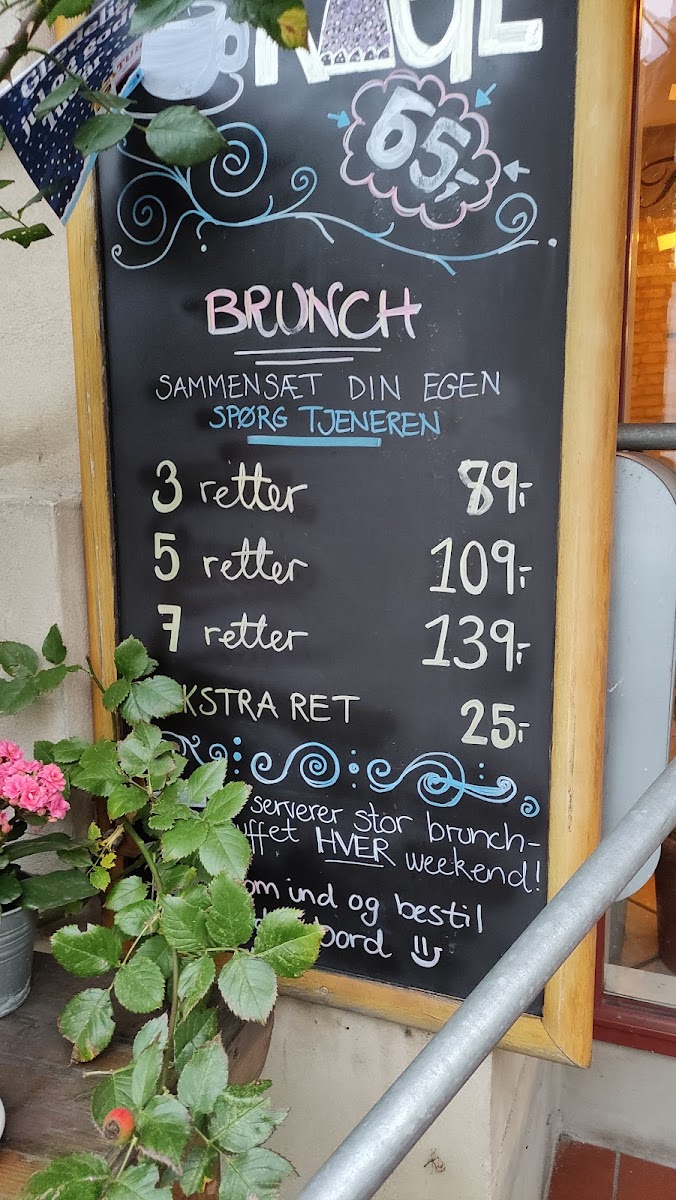 KAGE
65,-
BRUNCH
SAMMENSÆT DIN EGEN
SPØRG TJENEREN
3 retter 89,-
5 retter 109,-
7 retter 139,-
KSTRA RET 25,-
serverer stor brunch-
uffet HVER weekend!
om ind og bestil
bord